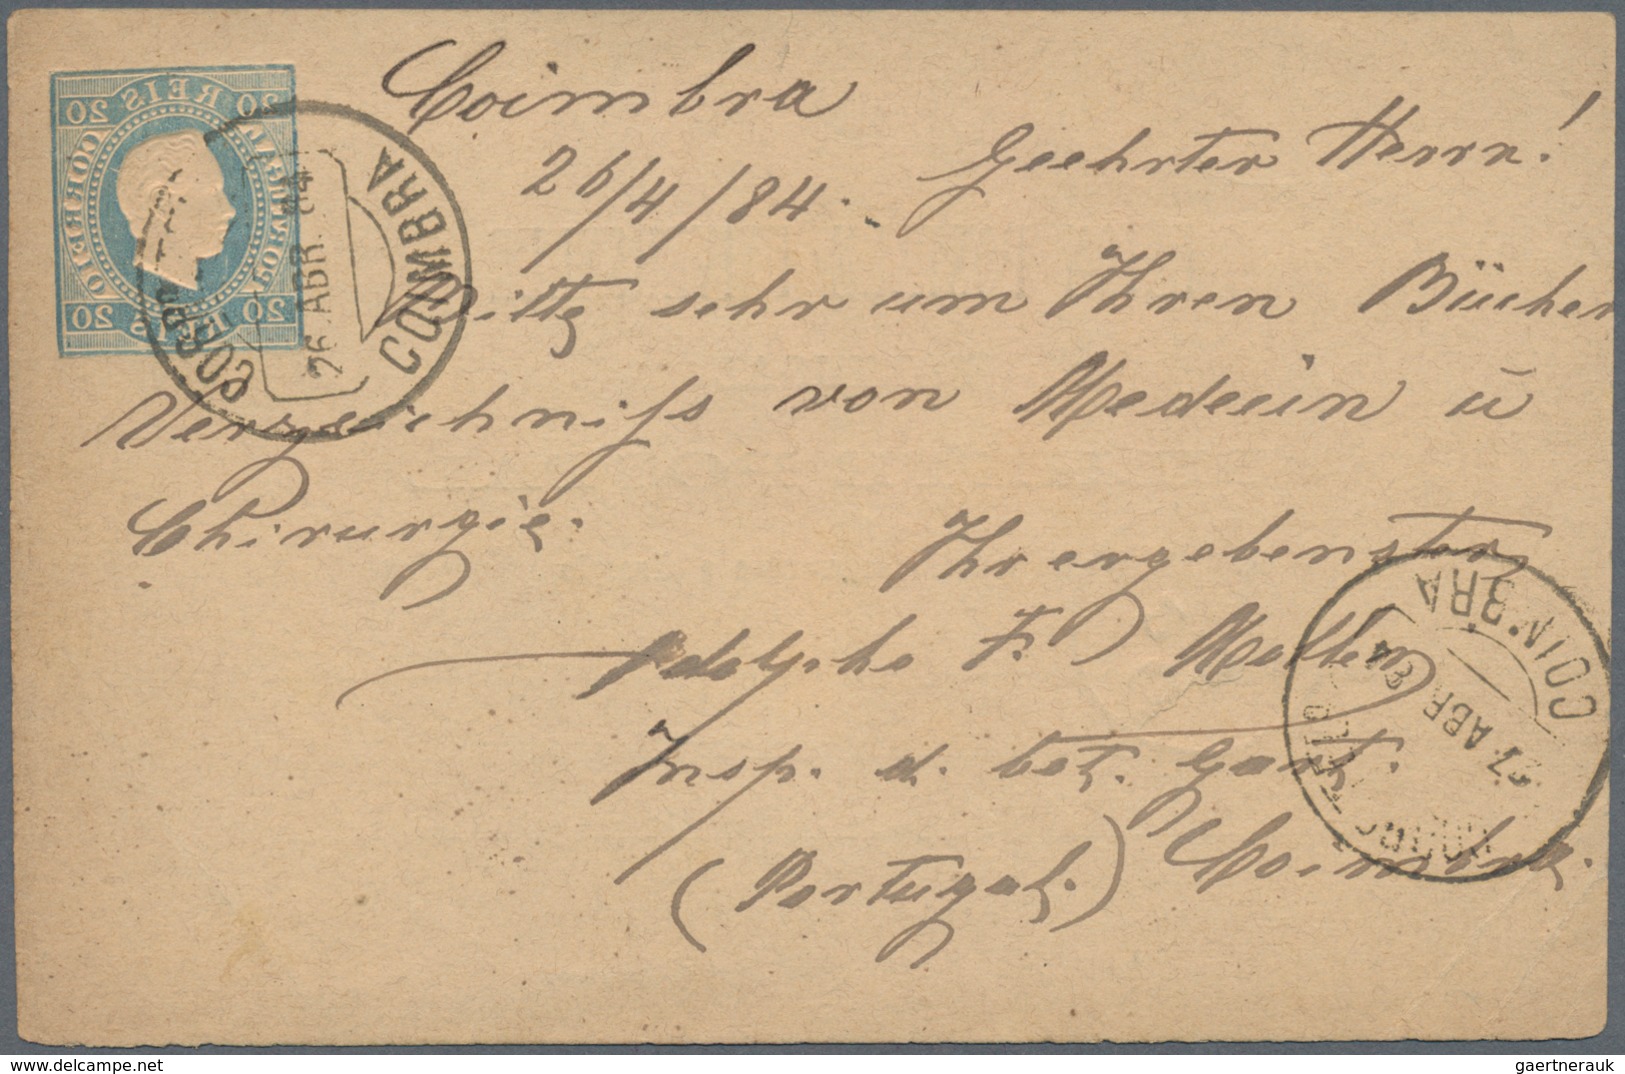 Coimbra
26/4/84.
Geehrter Herrn!
Bitte sehr um Ihren Bücher
Verzeichniß von Medecin ū
Chirurgie.
Ihr ergebenster
Adolpho F. Moller
Insp. d. bot. Gart.
Coimbra.
(Portugal.)
20 REIS 20
PORTUGAL
CORREIO
20 REIS 20
COIMBRA
26 ABR. 84
COIMBRA
27 ABR 84
gaertnerauk / www.delcampe.net